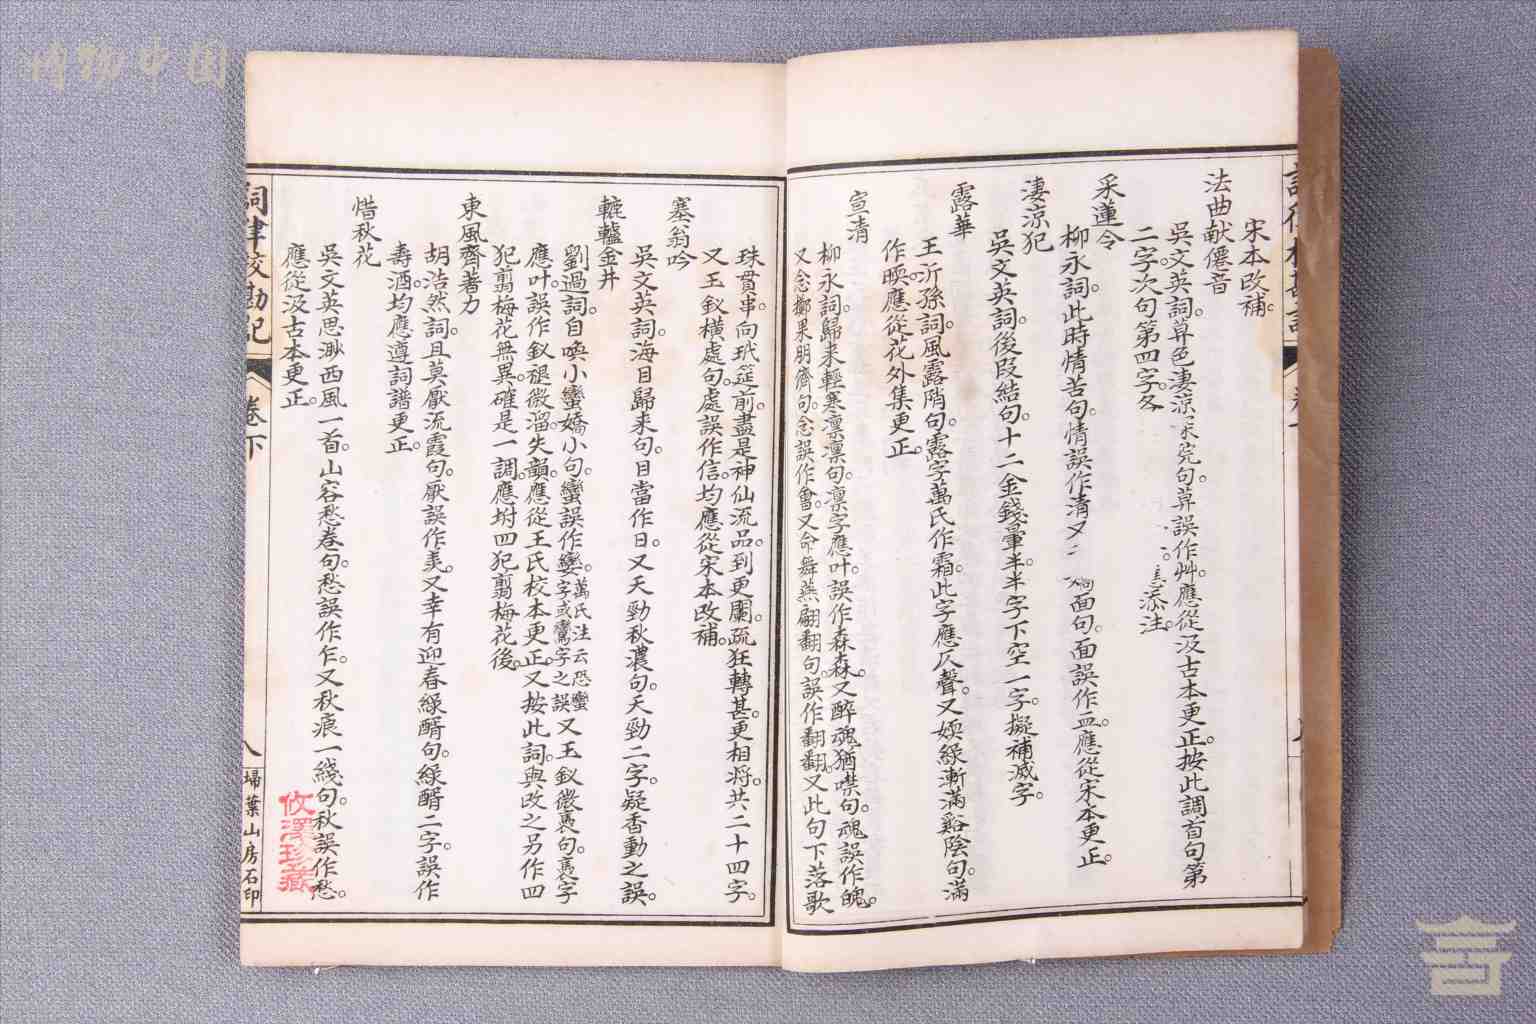 宋本改補。
法曲献僊音
吳文英詞。萛色淒涼。求凭句。萛誤作艸。應從汲古本更正。按此調首句第
二字次句第四字
添注。
采蓮令
柳永詞。此時情苦句。情誤作清。又
面句。面誤作血。應從宋本更正。
淒涼犯
吳文英詞。後段結句。十二金錢暈半。半字下空一字。擬補滅字。
露華
王沂孫詞。風露閒句。露字萬氏作霜。此字應仄聲。又嫩綠漸滿谿陰句。滿
作暎。應從花外集更正。
宣清
柳永詞。歸來輕寒凛凛句。凛字應叶。誤作森森。又醉魂猶噤句。魂誤作魄。
又念擲果朋儕句。念誤作會。又命舞燕翩翻句。誤作翻翻。又此句下落歌
珠貫串。向玳筵前。盡是神仙流品。到更闌。疏狂轉甚。更相將。共二十四字。
又玉釵橫處句。處誤作信。均應從宋本改補。
塞翁吟
吳文英詞。海目歸來句。目當作日。又天勁秋濃句。天勁二字。疑香動之誤。
轆轤金井
劉過詞。自喚小蠻嬌小句。蠻誤作孌。萬氏注云恐孌字或鸞字之誤又玉釵微褭句。褭字
應叶。誤作釵褪微溜。失韻。應從王氏校本更正。又按此詞。與改之另作四
犯翦梅花無異。確是一調。應坿四犯翦梅花後。
東風齊著力
胡浩然詞。且莫厭流霞句。厭誤作羙。又幸有迎春綠醑句。綠醑二字。誤作
壽酒。均應遵詞譜更正。
惜秋花
吳文英思渺西風一首。山容愁卷句。愁誤作乍。又秋痕一綫句。秋誤作愁。
應從汲古本更正。
詞律校勘記
卷下
八
埽葉山房石印
攸澤珍藏
博物中国